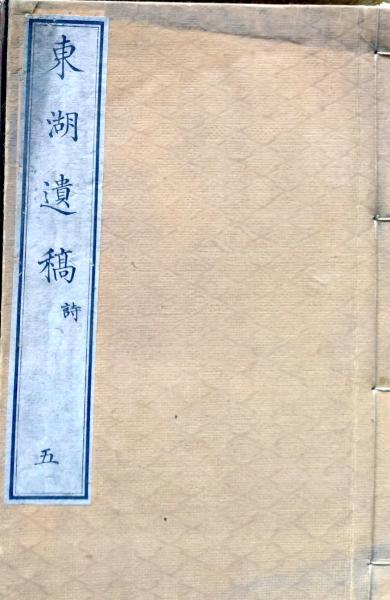 東湖遺稿 詩 五